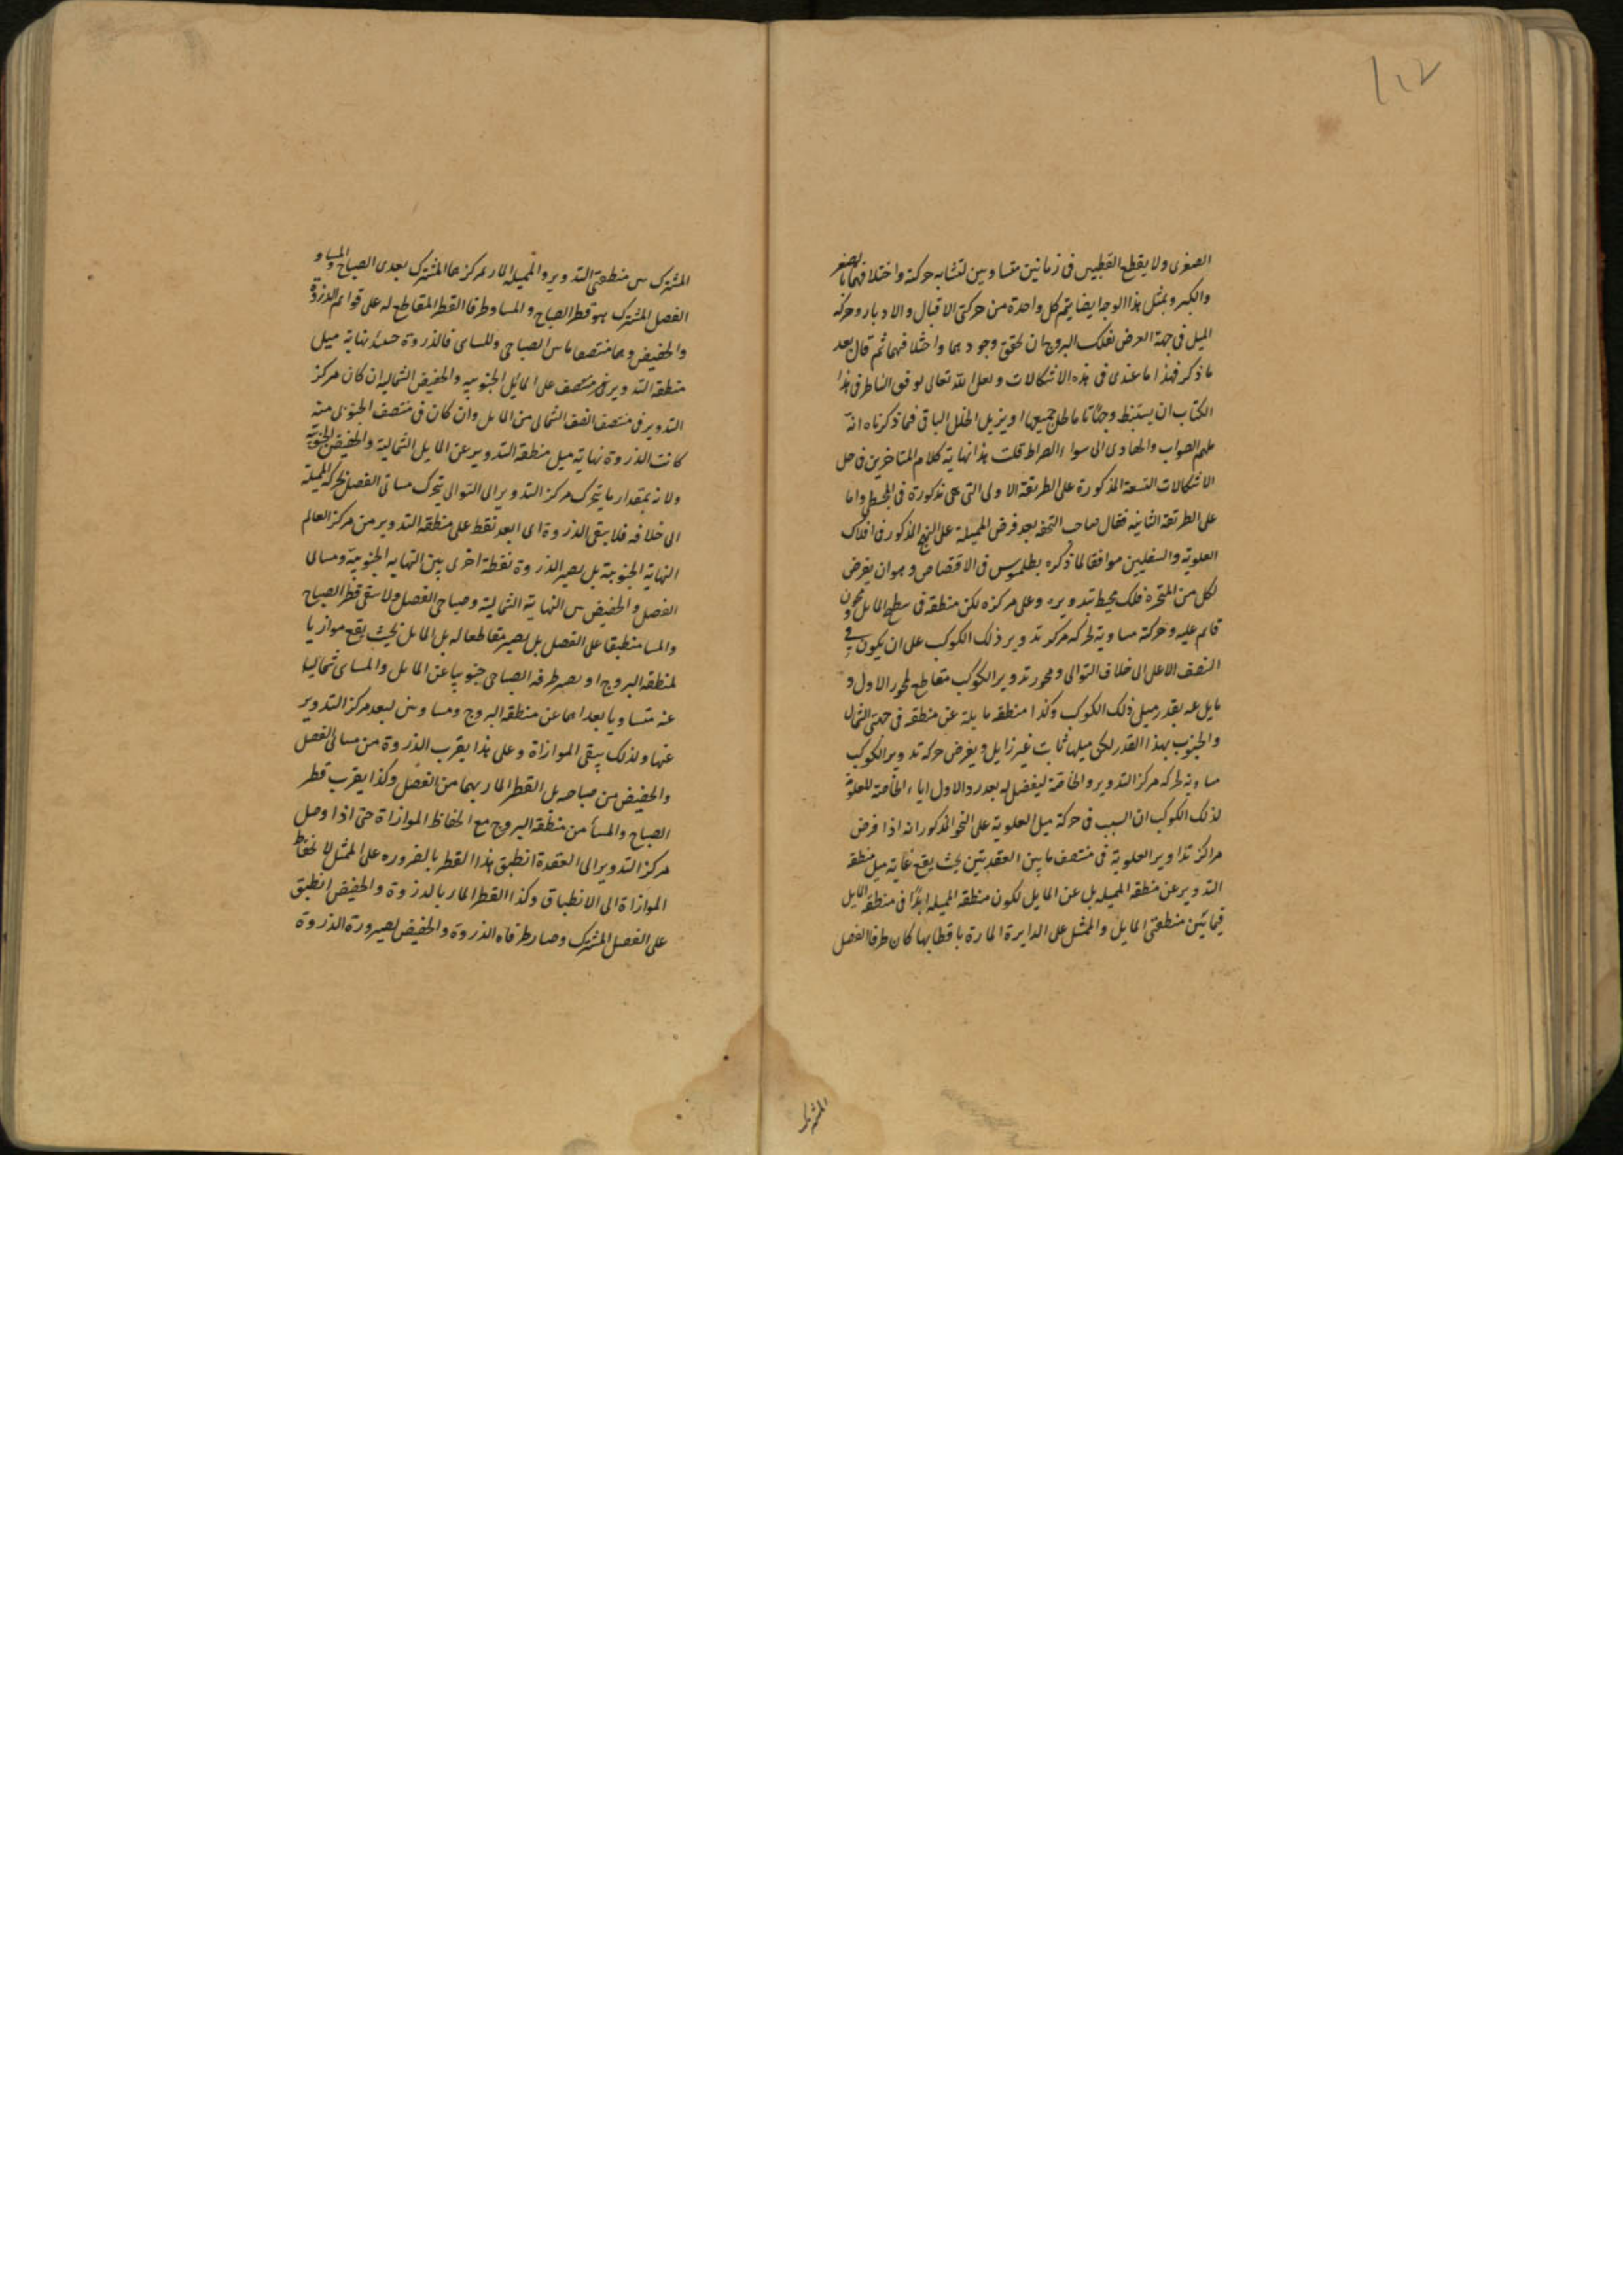 ١١٢
الصغرى ولا يقطع القطبين فى زمانين متساويين لتشابه حركة واختلافهما بالصغر
والكبر وبمثل هذا الوجه ايضا يتم كل واحدة من حركتى الاقبال والادبار وحركة
الميل فى جهة العرض لفلك البروج ان تحقق وجودهما واختلافهما ثم قال بعد
ما ذكر فهذا ما عندى فى هذه الاشكالات ولعل الله تعالى يوفق الناظر فى هذا
الكتاب ان يستنبط وجها تاما لحل جميعها او يزيل الخلل الباقى فيما ذكرناه انه
ملهم الصواب والهادى الى سواء الصراط قلت هذا نهاية كلام المتاخرين فى حل
الاشكالات التسعة المذكورة على الطريقة الاولى التى هى مذكورة فى المجسطى واما
على الطريقة الثانيه فقال صاحب التحفه بعد فرض المميلة على النهج المذكور فى افلاك
العلوية والسفليين موافقا لما ذكره بطلميوس فى الاقتصاص وهو ان يفرض
لكل من المتحيرة فلك محيط بتدويره وعلى مركزه لكن منطقه فى سطح المايل محورى
قائم عليه وحركة مساوية لحركة مركز تدوير ذلك الكوكب على ان يكون فى
النصف الاعلى الى خلاف التوالى ومحور تدوير الكوكب مقاطع لمحور الاول و
مايل عنه بقدر ميل ذلك الكوكب وكذا منطقه مايلة عن منطقه فى جهتى الشمال
والجنوب بهذا القدر لكن ميلها ثابت غير زايل ويفرض حركة تدوير الكوكب
مساوية لحركة مركز التدوير والخاصة ليفضل له بعد رد الاول اياه الخاصة للعلوية
لذلك الكوكب ان السبب فى حركة ميل العلوية على النحو المذكور انه اذا فرض
مراكز تداوير العلوية فى منتصف ما بين العقدتين بحيث يقع غاية ميل منطقة
التدوير عن منطقة المميله بل عن المايل لكون منطقة المميله ابدا فى منطقة المايل
فيما بين منطقتى المايل والممثل على الدايرة المارة باقطابها كان طرفا الفصل
المشترك
المشترك بين منطقتى التدوير والمميله المار بمركزها المشترك بعدى الصباح والمساء و
الفصل المشترك هو قطر الصباح والمسا وطرفا القطر المقاطع له على قوائم الذروة
والحضيض وهما منتصفا ما بين الصباحى والمسائى فالذروة حينئذ نهاية ميل
منطقة التدوير فى منتصف على المائل الجنوبيه والحضيض الشماليه ان كان مركز
التدوير فى منتصف النصف الشمالى من المايل وان كان فى منتصف الجنوبى منه
كانت الذروة نهاية ميل منطقة التدوير عن المايل الشمالية والحضيض الجنوبية
ولانه بمقدار ما يتحرك مركز التدوير الى التوالى يتحرك مسائى الفصل بحركة المميلة
الى خلافه فلا يبقى الذروة اى ابعد نقط على منطقة التدوير من مركز العالم
النهاية الجنوبية بل يصير الذروة نقطة اخرى بين النهاية الجنوبية ومسائى
الفصل والحضيض بين النهاية الشمالية وصباحى الفصل ولا يبقى قطر الصباح
والمسا منطبقا على الفصل بل يصير مقاطعا له بل المايل بحيث يقع موازيا
لمنطقة البروج او يصير طرفه الصباحى جنوبيا عن المايل والمسائى شماليا
عنه متساويا بعداهما عن منطقة البروج ومساويين لبعد مركز التدوير
عنها ولذلك يبقى الموازاة وعلى هذا يقرب الذروة من مسائى الفصل
والحضيض من صباحه بل القطر المار بهما من الفصل وكذا يقرب قطر
الصباح والمسأ من منطقة البروج مع انحفاظ الموازاة حتى اذا وصل
مركز التدوير الى العقدة انطبق هذا القطر بالضروره على الممثل لانحفاظ
الموازاة الى الانطباق وكذا القطر المار بالذروة والحضيض انطبق
على الفصل المشترك وصار طرفاه الذروة والحضيض لصيرورة الذروة